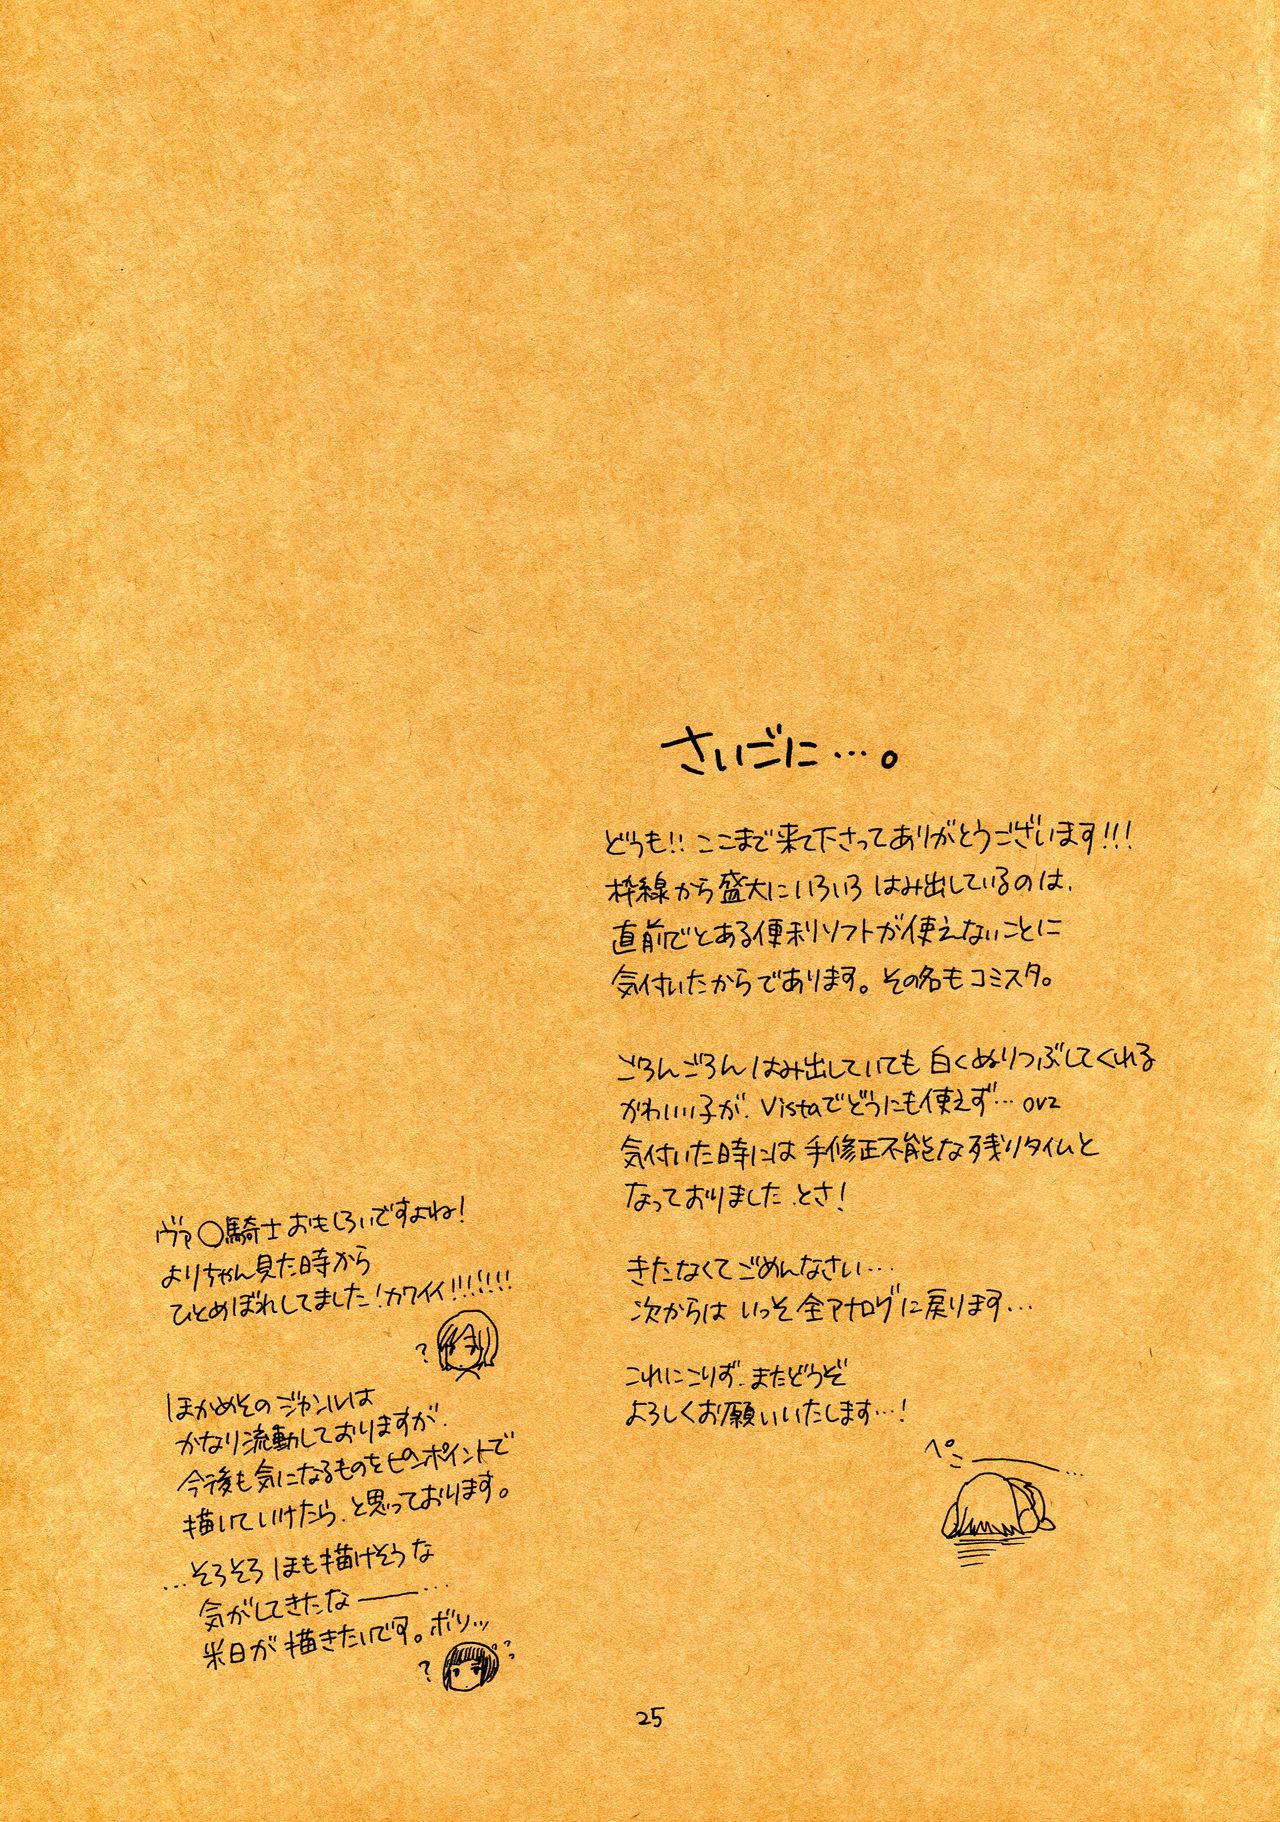 さいごに…。
どうも!! ここまで来て下さってありがとうございます!!!
枠線から盛大にいろいろ はみ出しているのは、
直前でとある便利ソフトが使えないことに
気付いたからであります。その名もコミスタ。
ごろんごろん はみ出していても 白くぬりつぶしてくれる
かわいい子が、Vistaでどうにも使えず… orz
気付いた時には 手修正不能な残りタイムと
なっておりました、とさ!
きたなくてごめんなさい…
次からは いっそ全アナログに戻ります…
これにこりず、またどうぞ
よろしくお願いいたします…!
ペこー…
ヴァ○騎士おもしろいですよね!
よりちゃん見た時から
ひとめぼれしてました!カワイイ!!!!!!
?
ほかめその ジャンルは
かなり流動しておりますが、
今後も気になるものをピンポイントで
描いていけたら、と思っております。
…そろそろ ほも描けそうな
気がしてきたなー…
米日が描きたいです。ボソッ
? ??
25